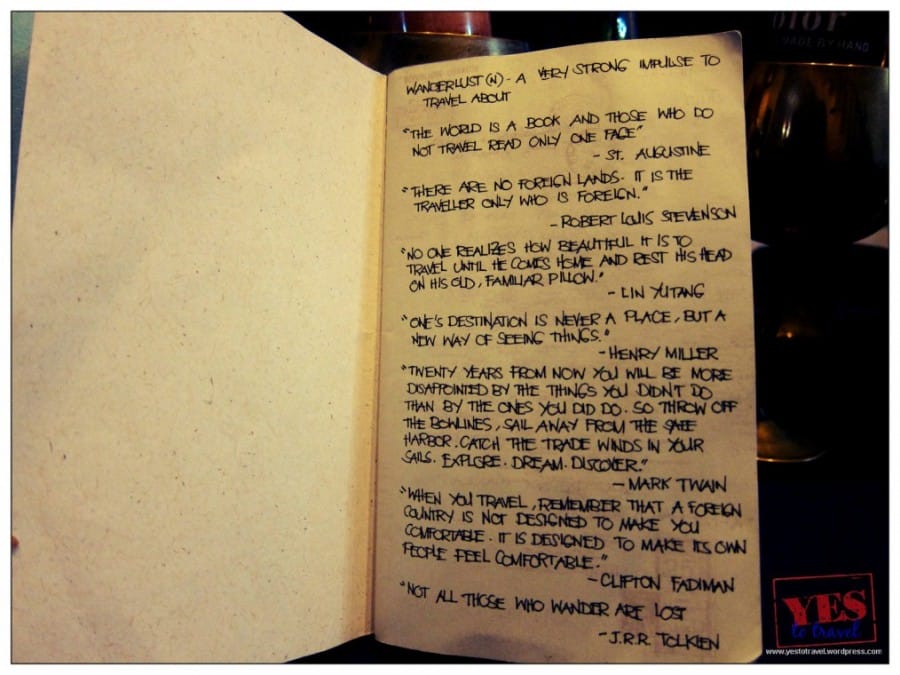 WANDERLUST (N) - A VERY STRONG IMPULSE TO
TRAVEL ABOUT
"THE WORLD IS A BOOK AND THOSE WHO DO
NOT TRAVEL READ ONLY ONE PAGE"
- ST. AUGUSTINE
"THERE ARE NO FOREIGN LANDS. IT IS THE
TRAVELLER ONLY WHO IS FOREIGN."
- ROBERT LOUIS STEVENSON
"NO ONE REALIZES HOW BEAUTIFUL IT IS TO
TRAVEL UNTIL HE COMES HOME AND REST HIS HEAD
ON HIS OLD, FAMILIAR PILLOW."
- LIN YUTANG
"ONE'S DESTINATION IS NEVER A PLACE, BUT A
NEW WAY OF SEEING THINGS."
- HENRY MILLER
"TWENTY YEARS FROM NOW YOU WILL BE MORE
DISAPPOINTED BY THE THINGS YOU DIDN'T DO
THAN BY THE ONES YOU DID DO. SO THROW OFF
THE BOWLINES, SAIL AWAY FROM THE SAFE
HARBOR. CATCH THE TRADE WINDS IN YOUR
SAILS. EXPLORE. DREAM. DISCOVER."
- MARK TWAIN
"WHEN YOU TRAVEL, REMEMBER THAT A FOREIGN
COUNTRY IS NOT DESIGNED TO MAKE YOU
COMFORTABLE. IT IS DESIGNED TO MAKE ITS OWN
PEOPLE FEEL COMFORTABLE."
- CLIFTON FADIMAN
"NOT ALL THOSE WHO WANDER ARE LOST
- J.R.R. TOLKIEN
MADE BY HAND
YES
to travel
www.yestotravel.wordpress.com